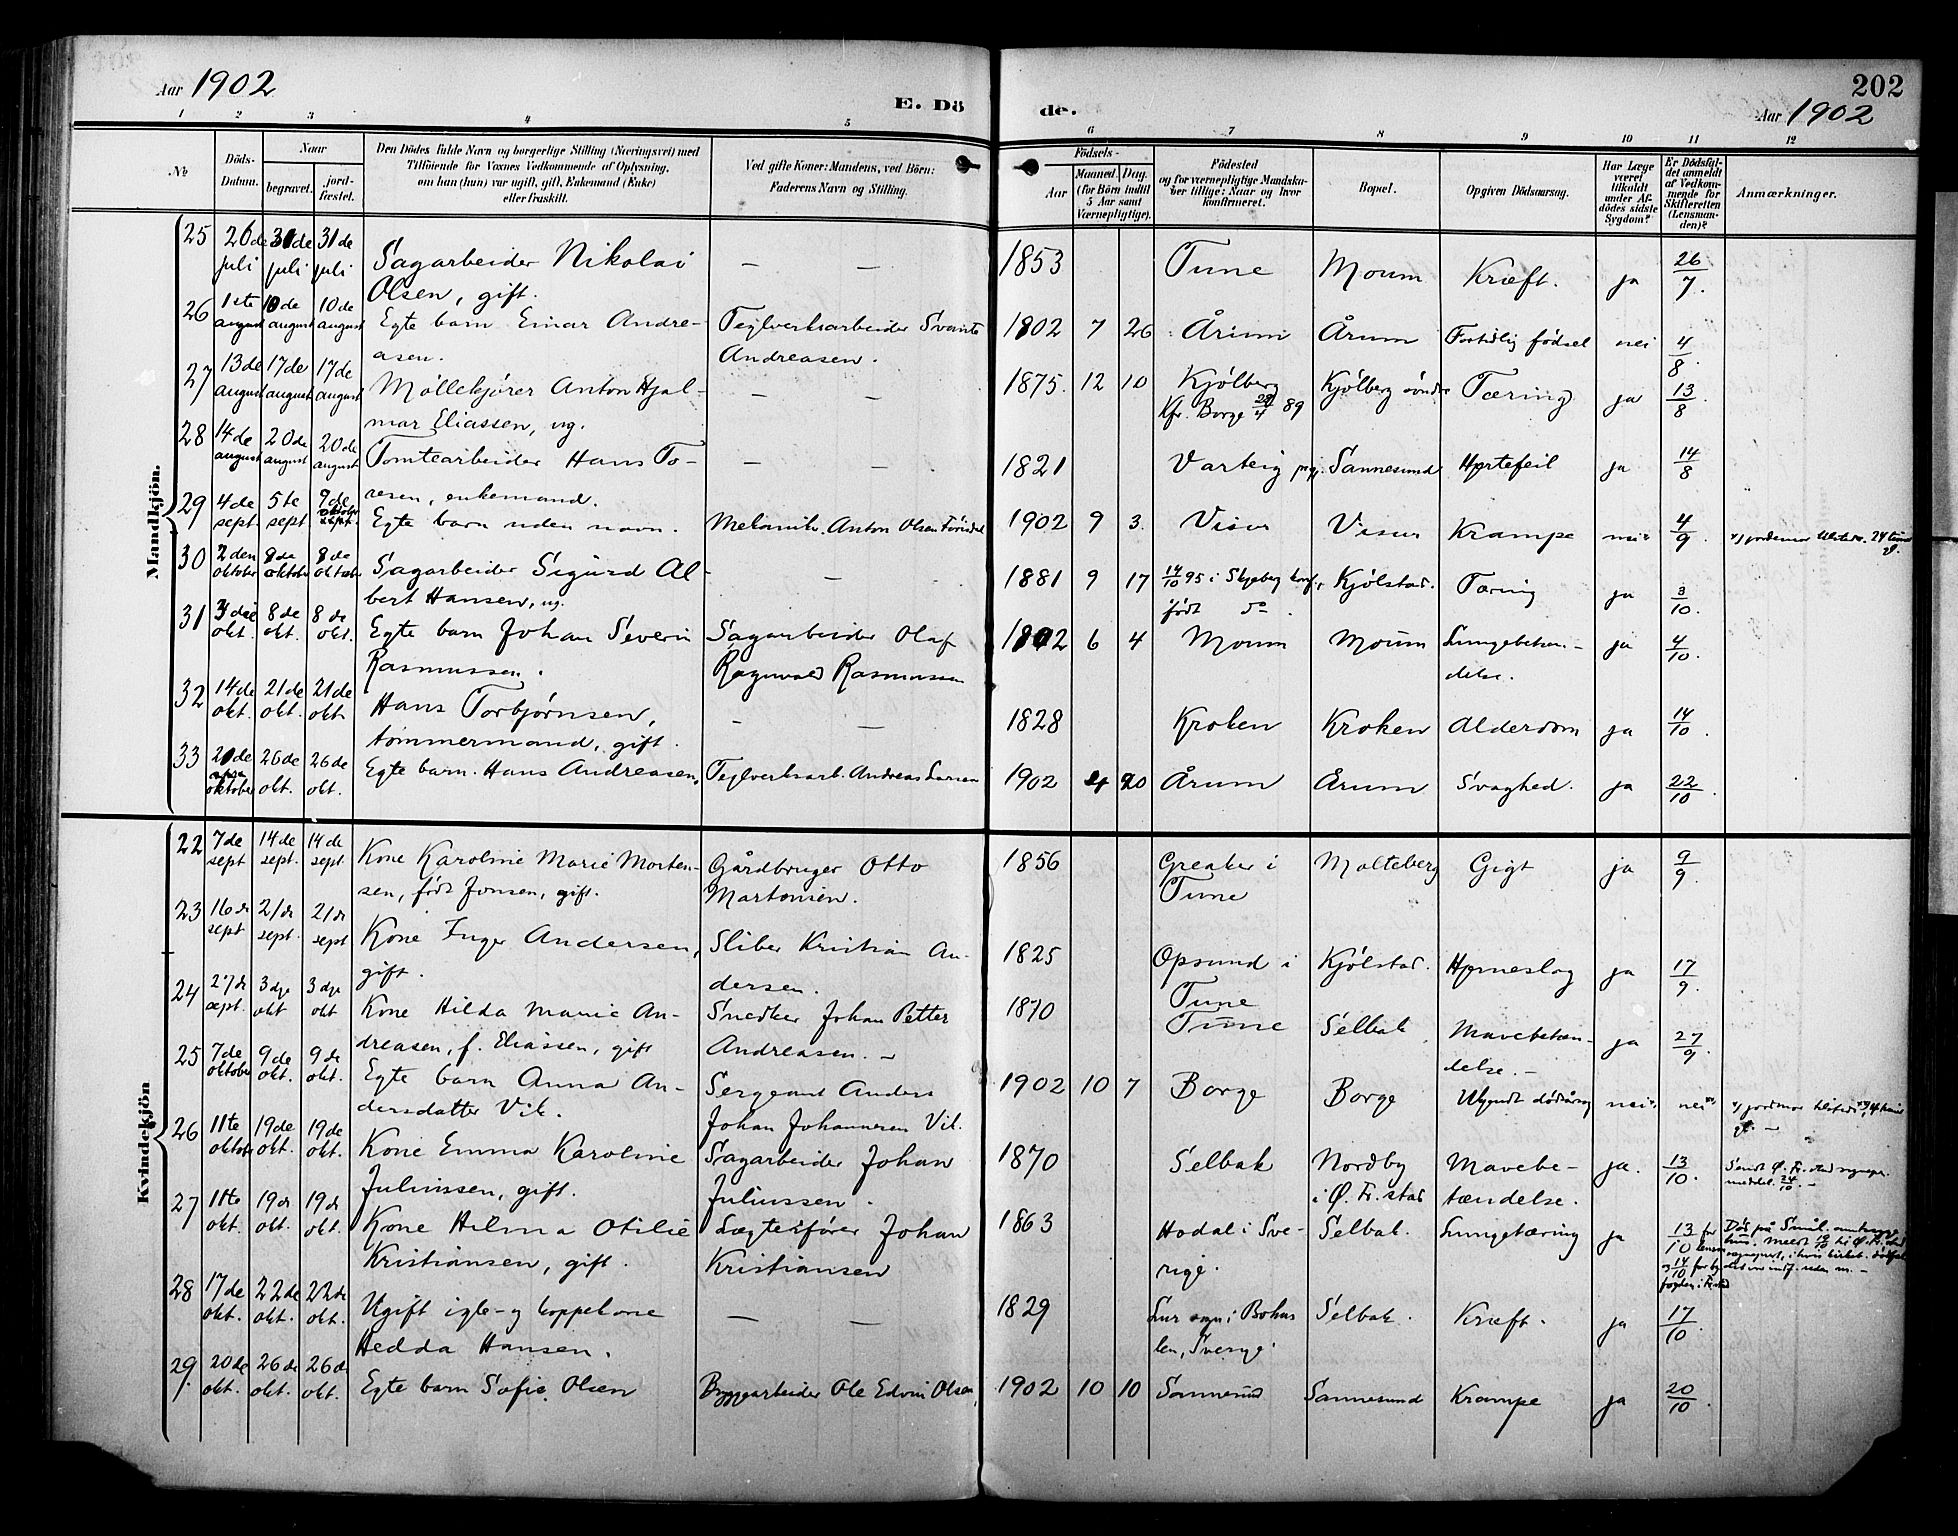 Aar 1902
E. Dö
de.
202
Aar 1902
1 2 3 4 5 6 7 8 9 10 11 12
No
Döds-Datum.
Naar
begravet.
jord-fæstet.
Den Dödes fulde Navn og borgerlige Stilling (Næringsvei) med
Tilföiende for Voxnes Vedkommende af Oplysning,
om han (hun) var ugift, gift, Enkemand (Enke)
eller fraskilt.
Ved gifte Koner: Mandens, ved Börn:
Faderens Navn og Stilling.
Födsels-
Aar
Maaned. Dag.
(for Börn indtil
5 Aar samt
Værnepligtige).
Födested
og for værnepligtige Mandska-
ber tillige: Naar og hvor
konfirmeret.
Bopæl.
Opgiven Dödsaarsag.
Har Læge
været
tilkaldt
under Af-
dödes sidste
Sygdom?
Er Dödsfal-
det anmeldt
af Vedkom-
mende for
Skifteretten
(Lensman-
den)?
Anmærkninger.
Mandkjön.
25 26de juli 31de juli 31de juli Sagarbeider Nikolai — — 1853 Tune Moum Kræft. ja 26/7.
Olsen, gift.
26 1ste august 10de august 10de august Egte barn Einar Andre- Teglverksarbeider Svante 1902 7 26 Årum Årum Fortidlig fødsel nei 4/8.
asen. Andreasen.
27 13de august 17de august 17de august Møllekjører Anton Hjal- — — 1875. 12 10 Kjølberg Kjølberg søndre Tæring ja 13/8
mar Eliassen, ug. Kfr. Borge 89
28 14de august 20de august 20de august Tomtearbeider Hans To- — — 1821 Varteig Sannesund Hjertefeil ja 14/8
resen, enkemand.
29 4de sept. 5te sept. 9de oktober Egte barn uden navn. Mekanik. Anton Olsen 1902 9 3. Visur Visur Krampe nei 4/9.
30 2den oktober 8de oktober 8de oktober Sagarbeider Sigurd Al- — 1881 9 17 14/10 95 i Skjeberg konf. Kjølstad. Tæring ja 3/10.
bert Hansen, ug. født do.
31 3die okt. 8de okt. 8de okt. Egte barn Johan Severin Sagarbeider Olaf 1902 6 4 Moum Moum Lungebetæn- ja 4/10.
Rasmussen. Ragnvald Rasmussen delse.
32 14de okt. 21de okt. 21de okt. Hans Torbjørnsen, — — 1828 Kroken Kroken Alderdom ja 14/10
tømmermand, gift.
33 20de oktober 26de okt. 26de okt. Egte barn. Hans Andreasen, Teglverksarb. Andreas Larsen 1902 4 20 Årum Årum Svaghed. ja 22/10.
Kvindekjön
22 7de sept 14de sept. 14de sept Kone Karoline Marie Morten- Gårdbruger Otto 1856 Greaker i Molteberg Gigt ja 9/9.
sen, født Jonsen, gift. Martonsen. Tune
23 16de sept 21de sept. 21de sept Kone Inger Andersen, Sliber Kristian An- 1825 Opsund i Kjølstad. Hjerneslag ja 17/9.
gift. dersen. Tune
24 27de sept. 3dje okt 3dje okt Kone Hilda Marie An- Snedker Johan Petter 1870 Tune Selbak Mavebetæn- ja 27/9.
dreasen, f. Eliassen, gift Andreasen. — delse. —
25 7de oktober 9de okt. 9de okt. Egte barn Anna An- Sergeant Anders 1902 10 7 Borge Borge Ukjendt dødsårsag nei nei
dersdatter Vik. Johan Johannesen Vik.
26 11te oktober 19de okt. 19de okt. Kone Emma Karoline Sagarbeider Johan 1870 Selbak Nordby Mavebe- ja. 13/10.
Juliussen, gift. Juliussen. i Ø. Fr.stad tændelse. meddel. 24/10. —
27 11te okt. 19de okt. 19de okt. Kone Hilma Otilie Lægtersfører Johan 1863 Hodal i Sve- Selbak. Lungetæring ja 13/10
Kristiansen, gift. Kristiansen rige.
28 17de okt. 22de okt. 22de okt. Ugift igle- og koppekone — — 1829 Lur sogn i Bohus- Selbak. Kræft. ja 17/10.
Hedda Hansen. len, Sverige.
29. 20de okt. 26de okt. 26de okt. Egte barn Sofie Olsen Byggearbeider Ole Edvin Olsen, 1902 10 10 Sannesund Sannesund Krampe ja 20/10.